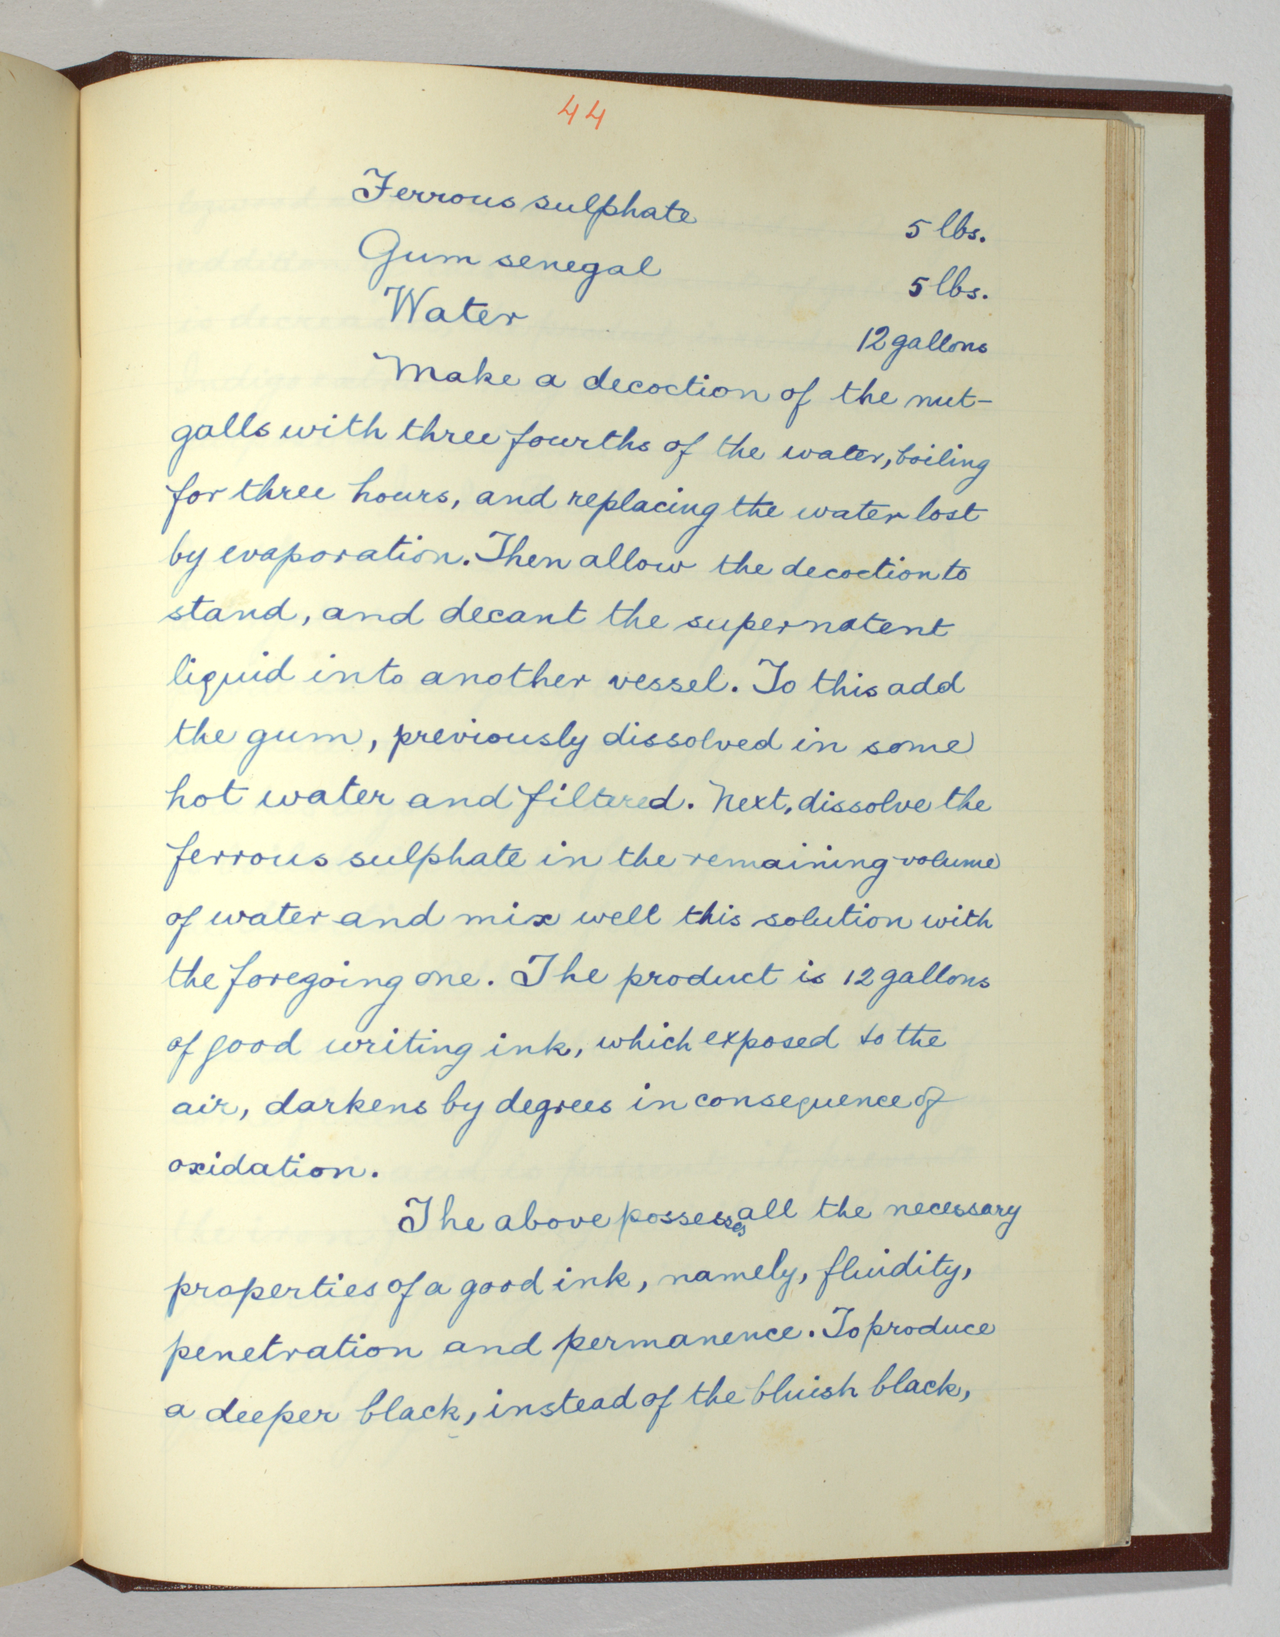 44
Ferrous sulphate 5 lbs.
Gum senegal 5 lbs.
Water 12 gallons
Make a decoction of the nut-
galls with three fourths of the water, boiling
for three hours, and replacing the water lost
by evaporation. Then allow the decoction to
stand, and decant the supernatent
liquid into another vessel. To this add
the gum, previously dissolved in some
hot water and filtered. Next, dissolve the
ferrous sulphate in the remaining volume
of water and mix well this solution with
the foregoing one. The product is 12 gallons
of good writing ink, which exposed to the
air, darkens by degrees in consequence of
oxidation.
The above possesses all the necessary
properties of a good ink, namely, fluidity,
penetration and permanence. To produce
a deeper black, instead of the bluish black,